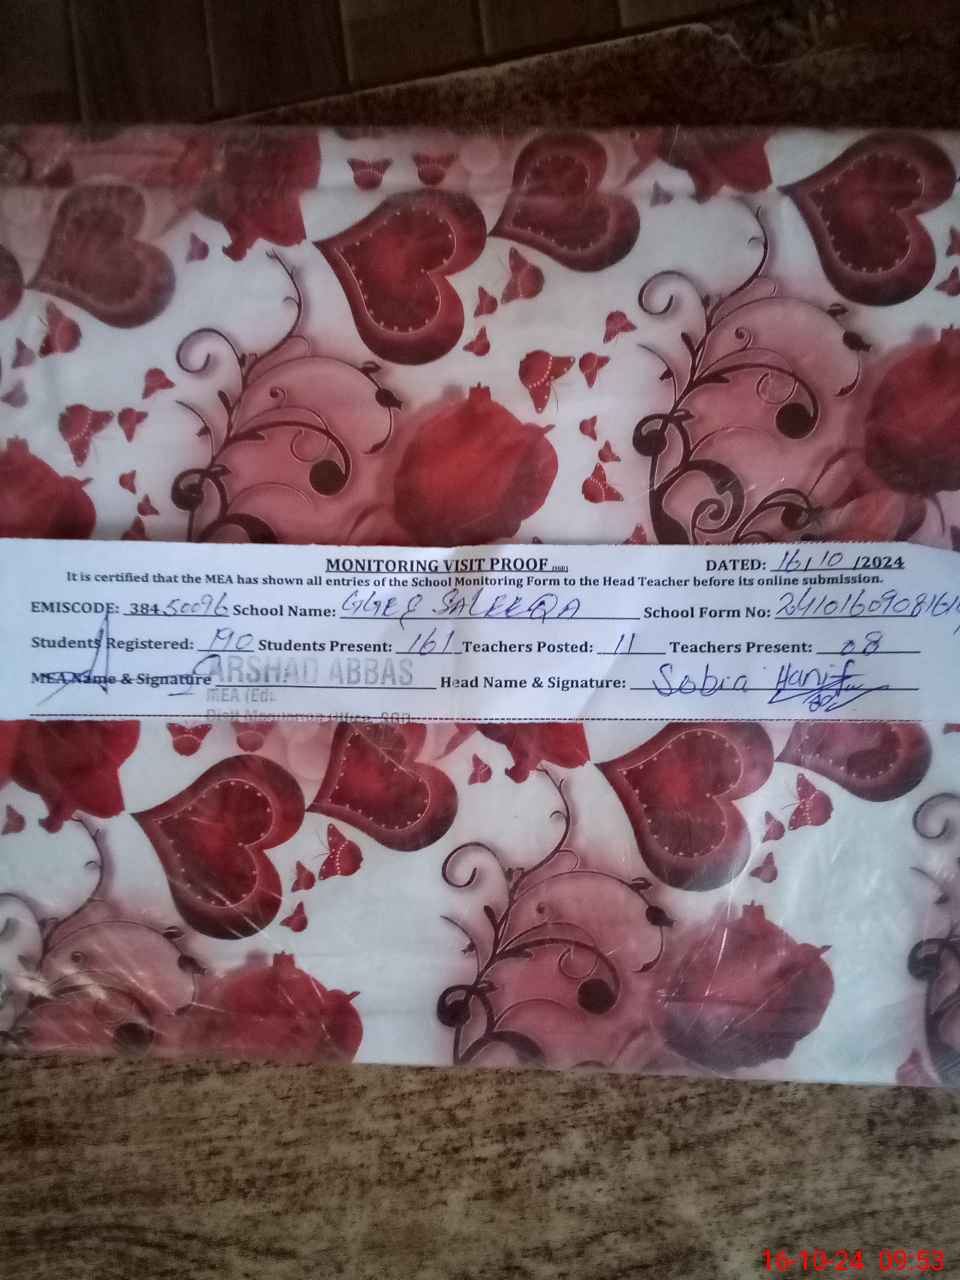 MONITORING VISIT PROOF DATED: 16/10/2024
It is certified that the MEA has shown all entries of the School Monitoring Form to the Head Teacher before its online submission.
EMISCODE: 38450096 School Name: SALEEQA School Form No:
Students Registered: 190 Students Present: 161 Teachers Posted: 11 Teachers Present: 08
MEA Name & Signature ARSHAD ABBAS Head Name & Signature: Sobia Hanif
MEA (Edu
16-10-24 09:53